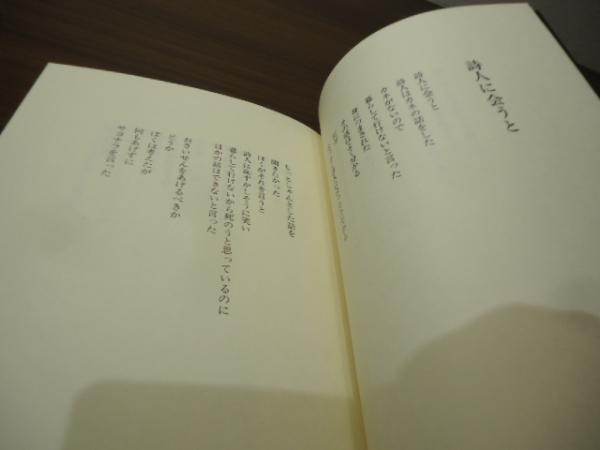 詩人に会うと
詩人に会うと
詩人はカネの話をした
カネがないので
暮らして行けないと言った
もっとしゃんとした話を
聞きたかった
ぼくがそれを言うと
詩人は恥ずかしそうに笑い
暮らして行けないから死のうと思っているのに
ほかの話はできないと言った
おさいせんをあげるべきか
どうか
ぼくは考えたが
何もあげずに
サヨナラを言った